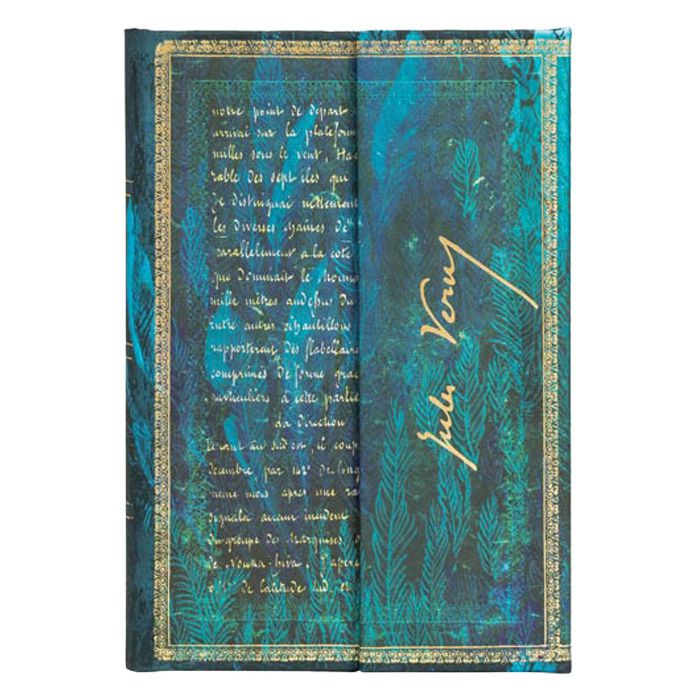 notre point de départ
arrivai sur la plateform
milles sous le vent, Hao
rable des sept iles que
je distinguai nettement
les diverses chaînes de
parallelement a la côte
que dominait le
mille mètres audessus du
entre autres échantillons
rapporterent des flabellaire
comprimés de forme grac
particuliers à cette partie
da direction
tenant au sud est, il coup
décembre par 142° de long
meme mois après une ra
signala aucun incident
du groupe des Marquises
de Nouka-hiva. J'aper
de latitude sud, et
Jules Verne